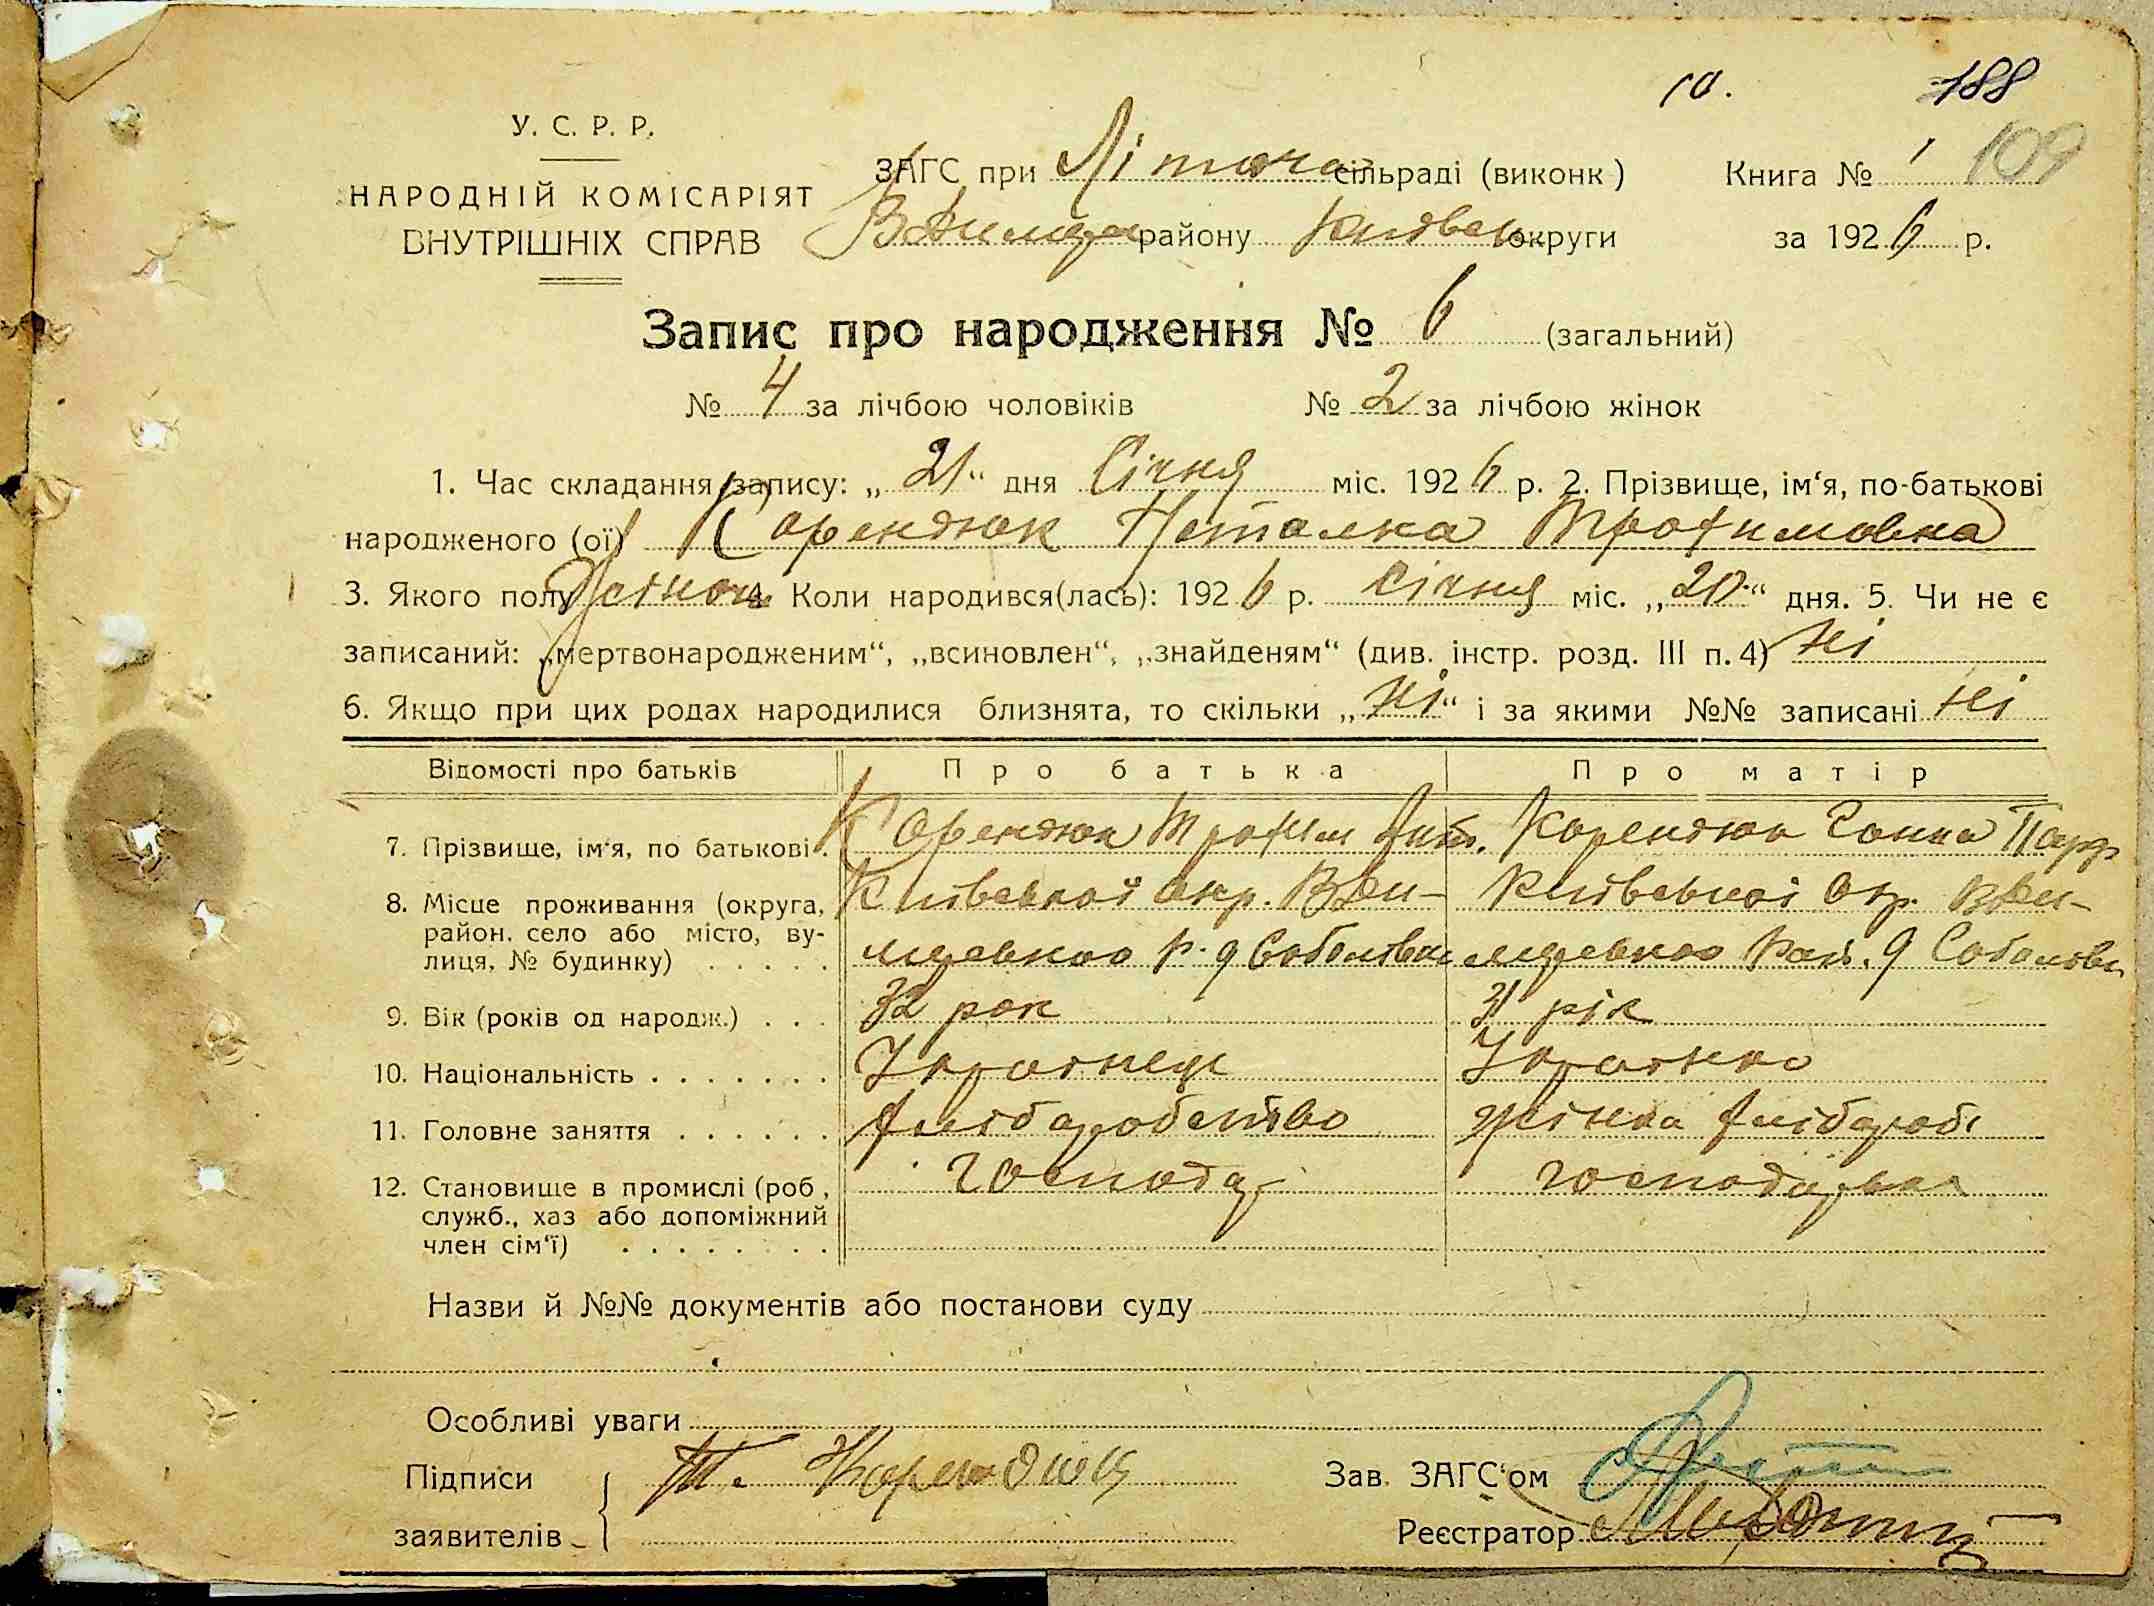 10. 188
У. С. Р. Р.
НАРОДНІЙ КОМІСАРІЯТ
ВНУТРІШНІХ СПРАВ
ЗАГС при Літоча сільраді (виконк) Книга № 1 109
району Київськ округи за 1926 р.
Запис про народження № 6 (загальний)
№ 4 за лічбою чоловіків № 2 за лічбою жінок
1. Час складання запису: „21“ дня Січня міс. 1926 р. 2. Прізвище, ім‘я, по-батькові
народженого (ої) Корендюк Наталка Трофимовна
3. Якого полу 4. Коли народився(лась): 1926 р. Січня міс. „20“ дня. 5. Чи не є
записаний: „мертвонародженим“, „всиновлен“, „знайденям“ (див. інстр. розд. III п. 4) Ні
6. Якщо при цих родах народилися близнята, то скільки „Ні“ і за якими №№ записані Ні
Відомості про батьків Про батька Про матір
7. Прізвище, ім‘я, по батькові. Корендюк Трофим Корендюк Ганна Парф
8. Місце проживання (округа, Київської окр. Вели- Київської Окр. Вели-
район, село або місто, ву-
лиця, № будинку) . . . . .
9. Вік (років од народж.) . . . 32 рок 31 рік
10. Національність . . . . . . . Українець Українка
11. Головне заняття . . . . . . хліборобство жінка хлібороб
12. Становище в промислі (роб, господар господарка
служб., хаз або допоміжний
член сім‘ї) . . . . . . . .
Назви й №№ документів або постанови суду
Особливі уваги
Підписи Т. Корендюк Зав. ЗАГС‘ом
заявителів Реєстратор